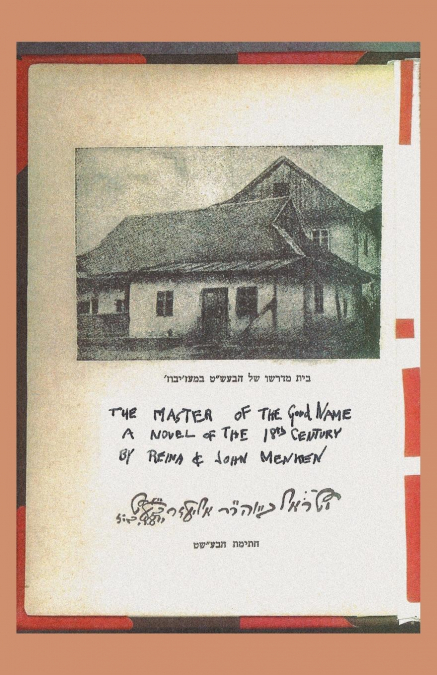 בית מדרשו של הבעש״ט במעז׳יבוז׳
THE MASTER OF THE Good NAME
A NOVEL OF THE 18th CENTURY
BY REINA & JOHN MENKEN
ישראל אליעזר
חתימת הבע״שט